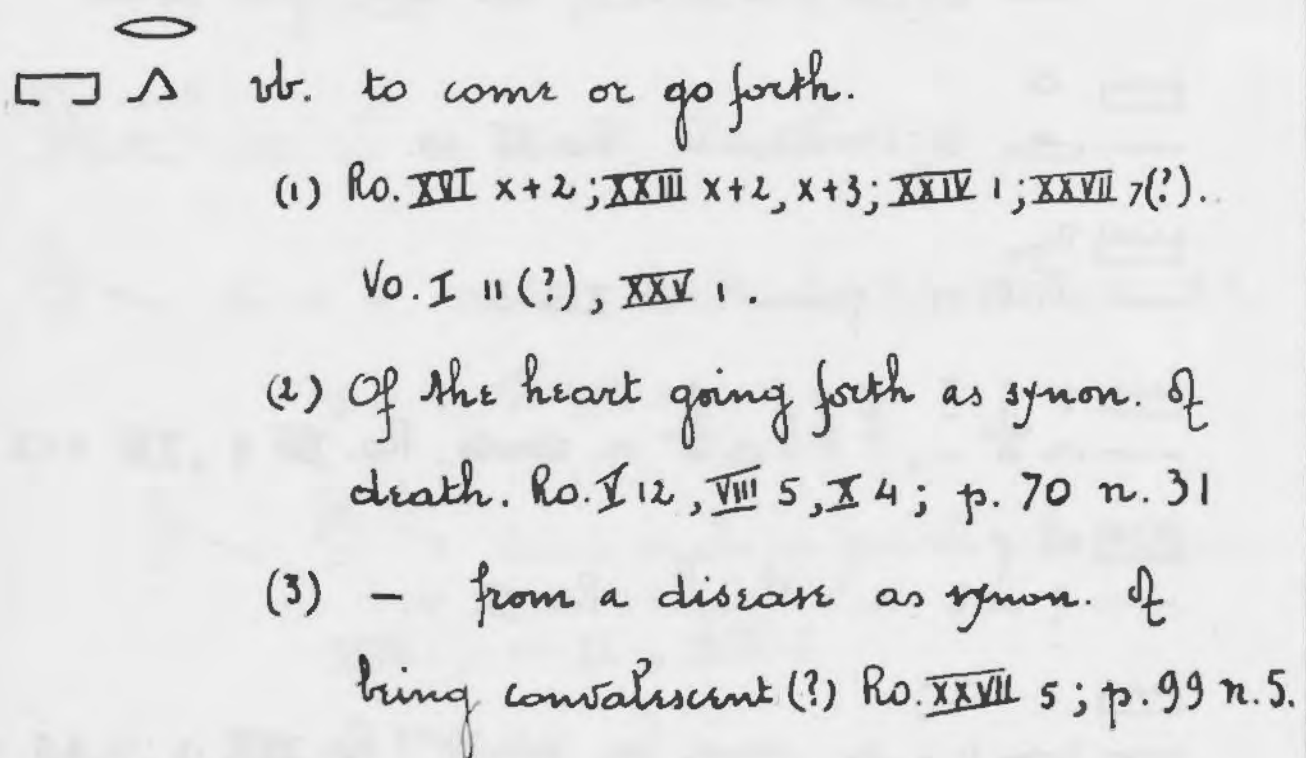 𓉐𓂋𓂻 vb. to come or go forth.
(1) Ro. XVI x+2; XXIII x+2, x+3; XXIV 1; XXVII 7(?).
Vo. I 11 (?), XXV 1.
(2) Of the heart going forth as synon. of
death. Ro. V 12, VIII 5, X 4; p. 70 n. 31
(3) – from a disease as synon. of
being convalescent (?) Ro. XXVII 5; p. 99 n. 5.